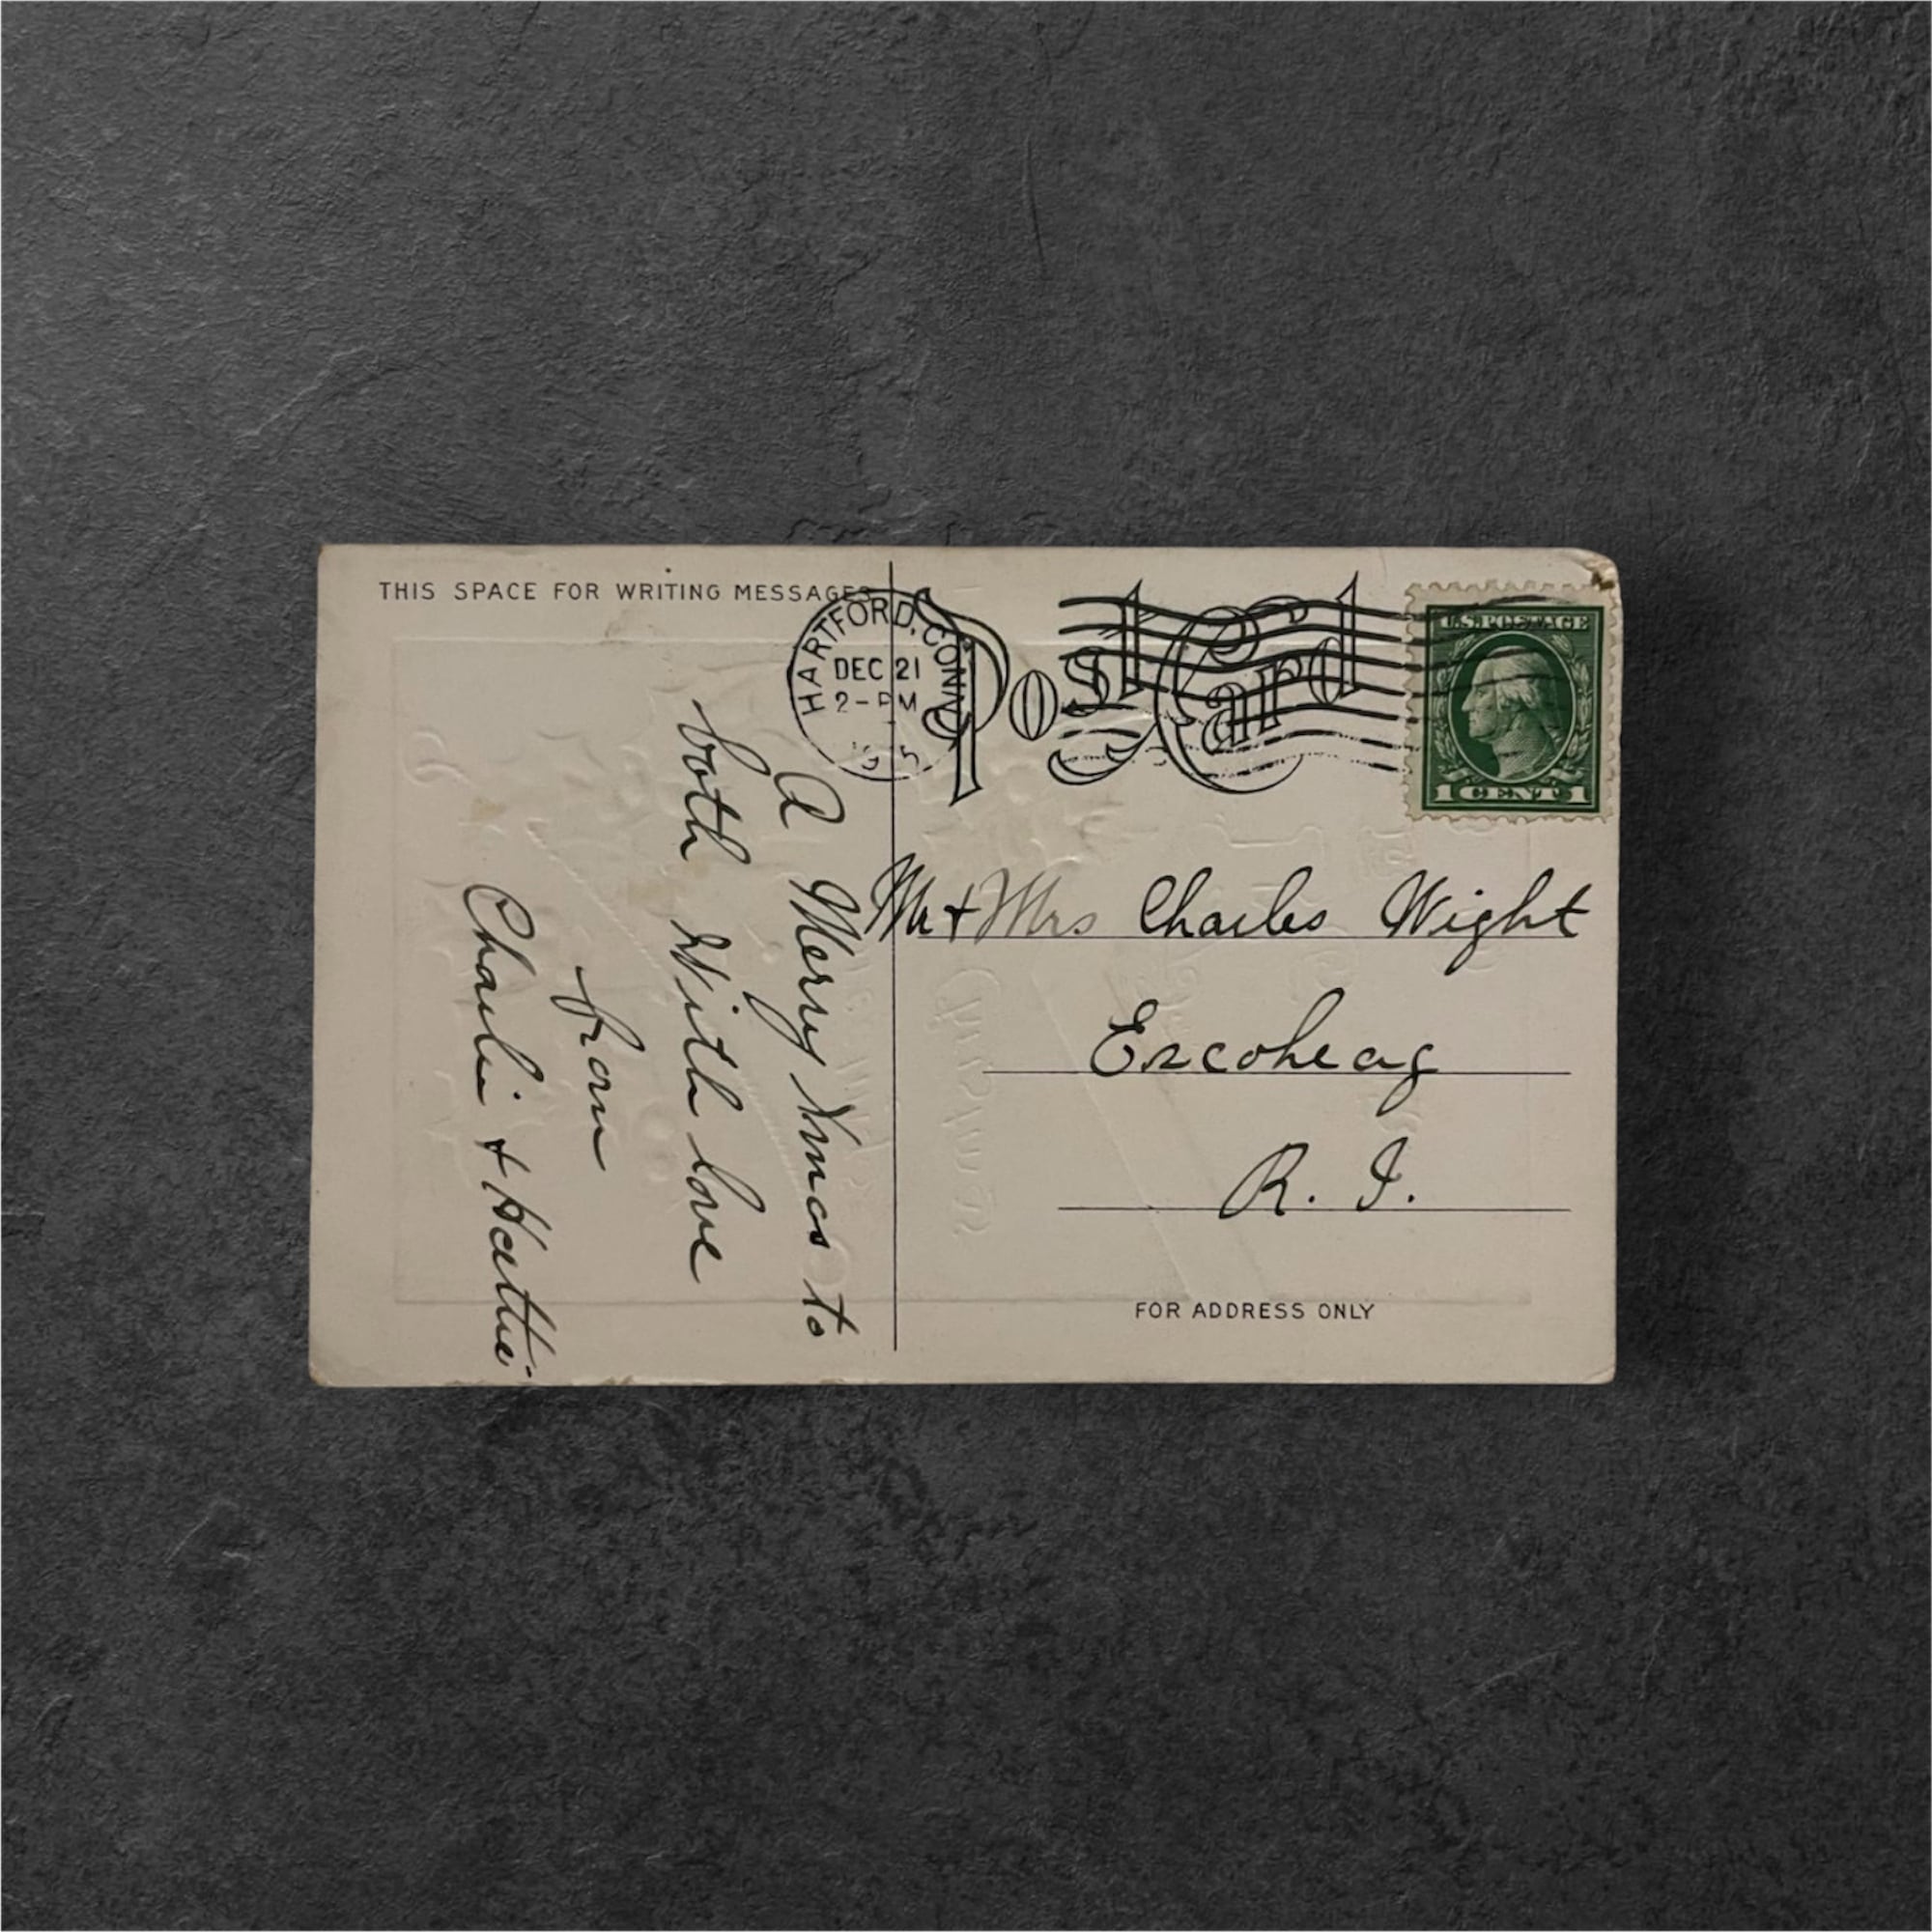 THIS SPACE FOR WRITING MESSAGES
Post Card
HARTFORD, CONN.
DEC 21
2-PM
U.S. POSTAGE
1 CENT 1
A Merry Xmas to
both With love
from
Charlie + Hattie
Mr + Mrs Charles Wight
Escoheag
R. I.
FOR ADDRESS ONLY